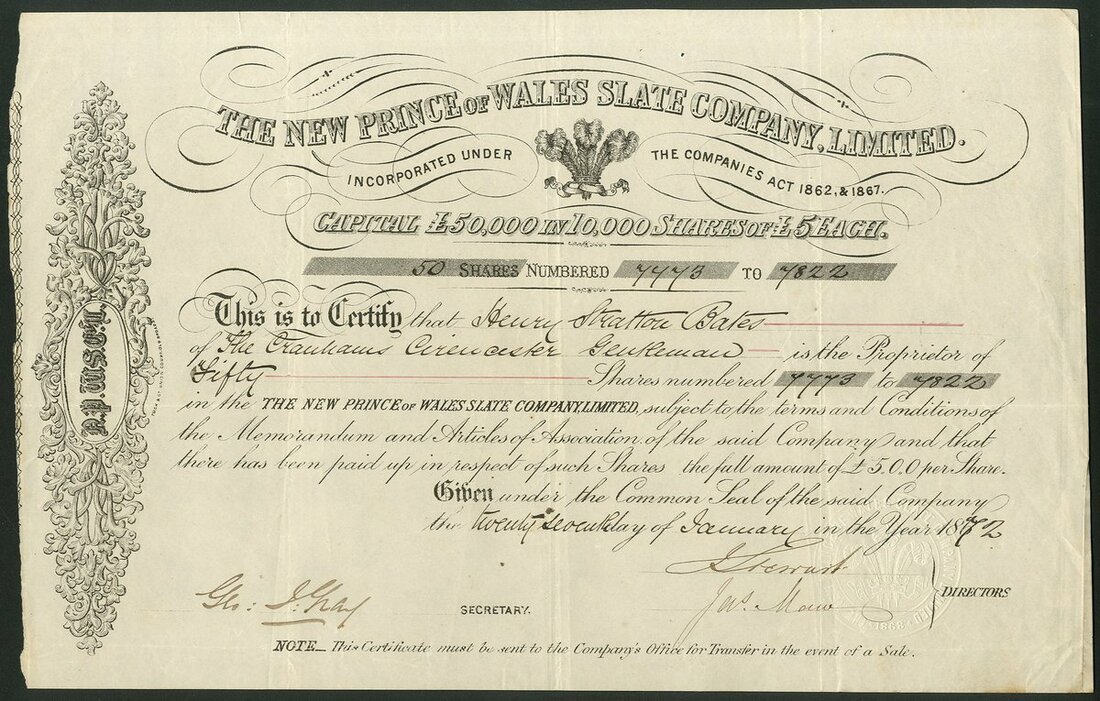 THE NEW PRINCE OF WALES SLATE COMPANY, LIMITED.
INCORPORATED UNDER THE COMPANIES ACT 1862, & 1867.
CAPITAL £50,000 IN 10,000 SHARES OF £5 EACH.
50 SHARES NUMBERED 7773 TO 7822
This is to Certify that Henry Stratton Bates
of The Cranhams Cirencester Gentleman is the Proprietor of
Fifty Shares numbered 7773 to 7822
in the THE NEW PRINCE OF WALES SLATE COMPANY, LIMITED, subject to the terms and Conditions of
the Memorandum and Articles of Association of the said Company and that
there has been paid up in respect of such Shares the full amount of £5,0,0 per Share.
Given under the Common Seal of the said Company
the twenty seventh day of January in the Year 1872
J Stewart
Geo: J. Gray SECRETARY. Jas. DIRECTORS
NOTE_ This Certificate must be sent to the Company's Office for Transfer in the event of a Sale.
1868